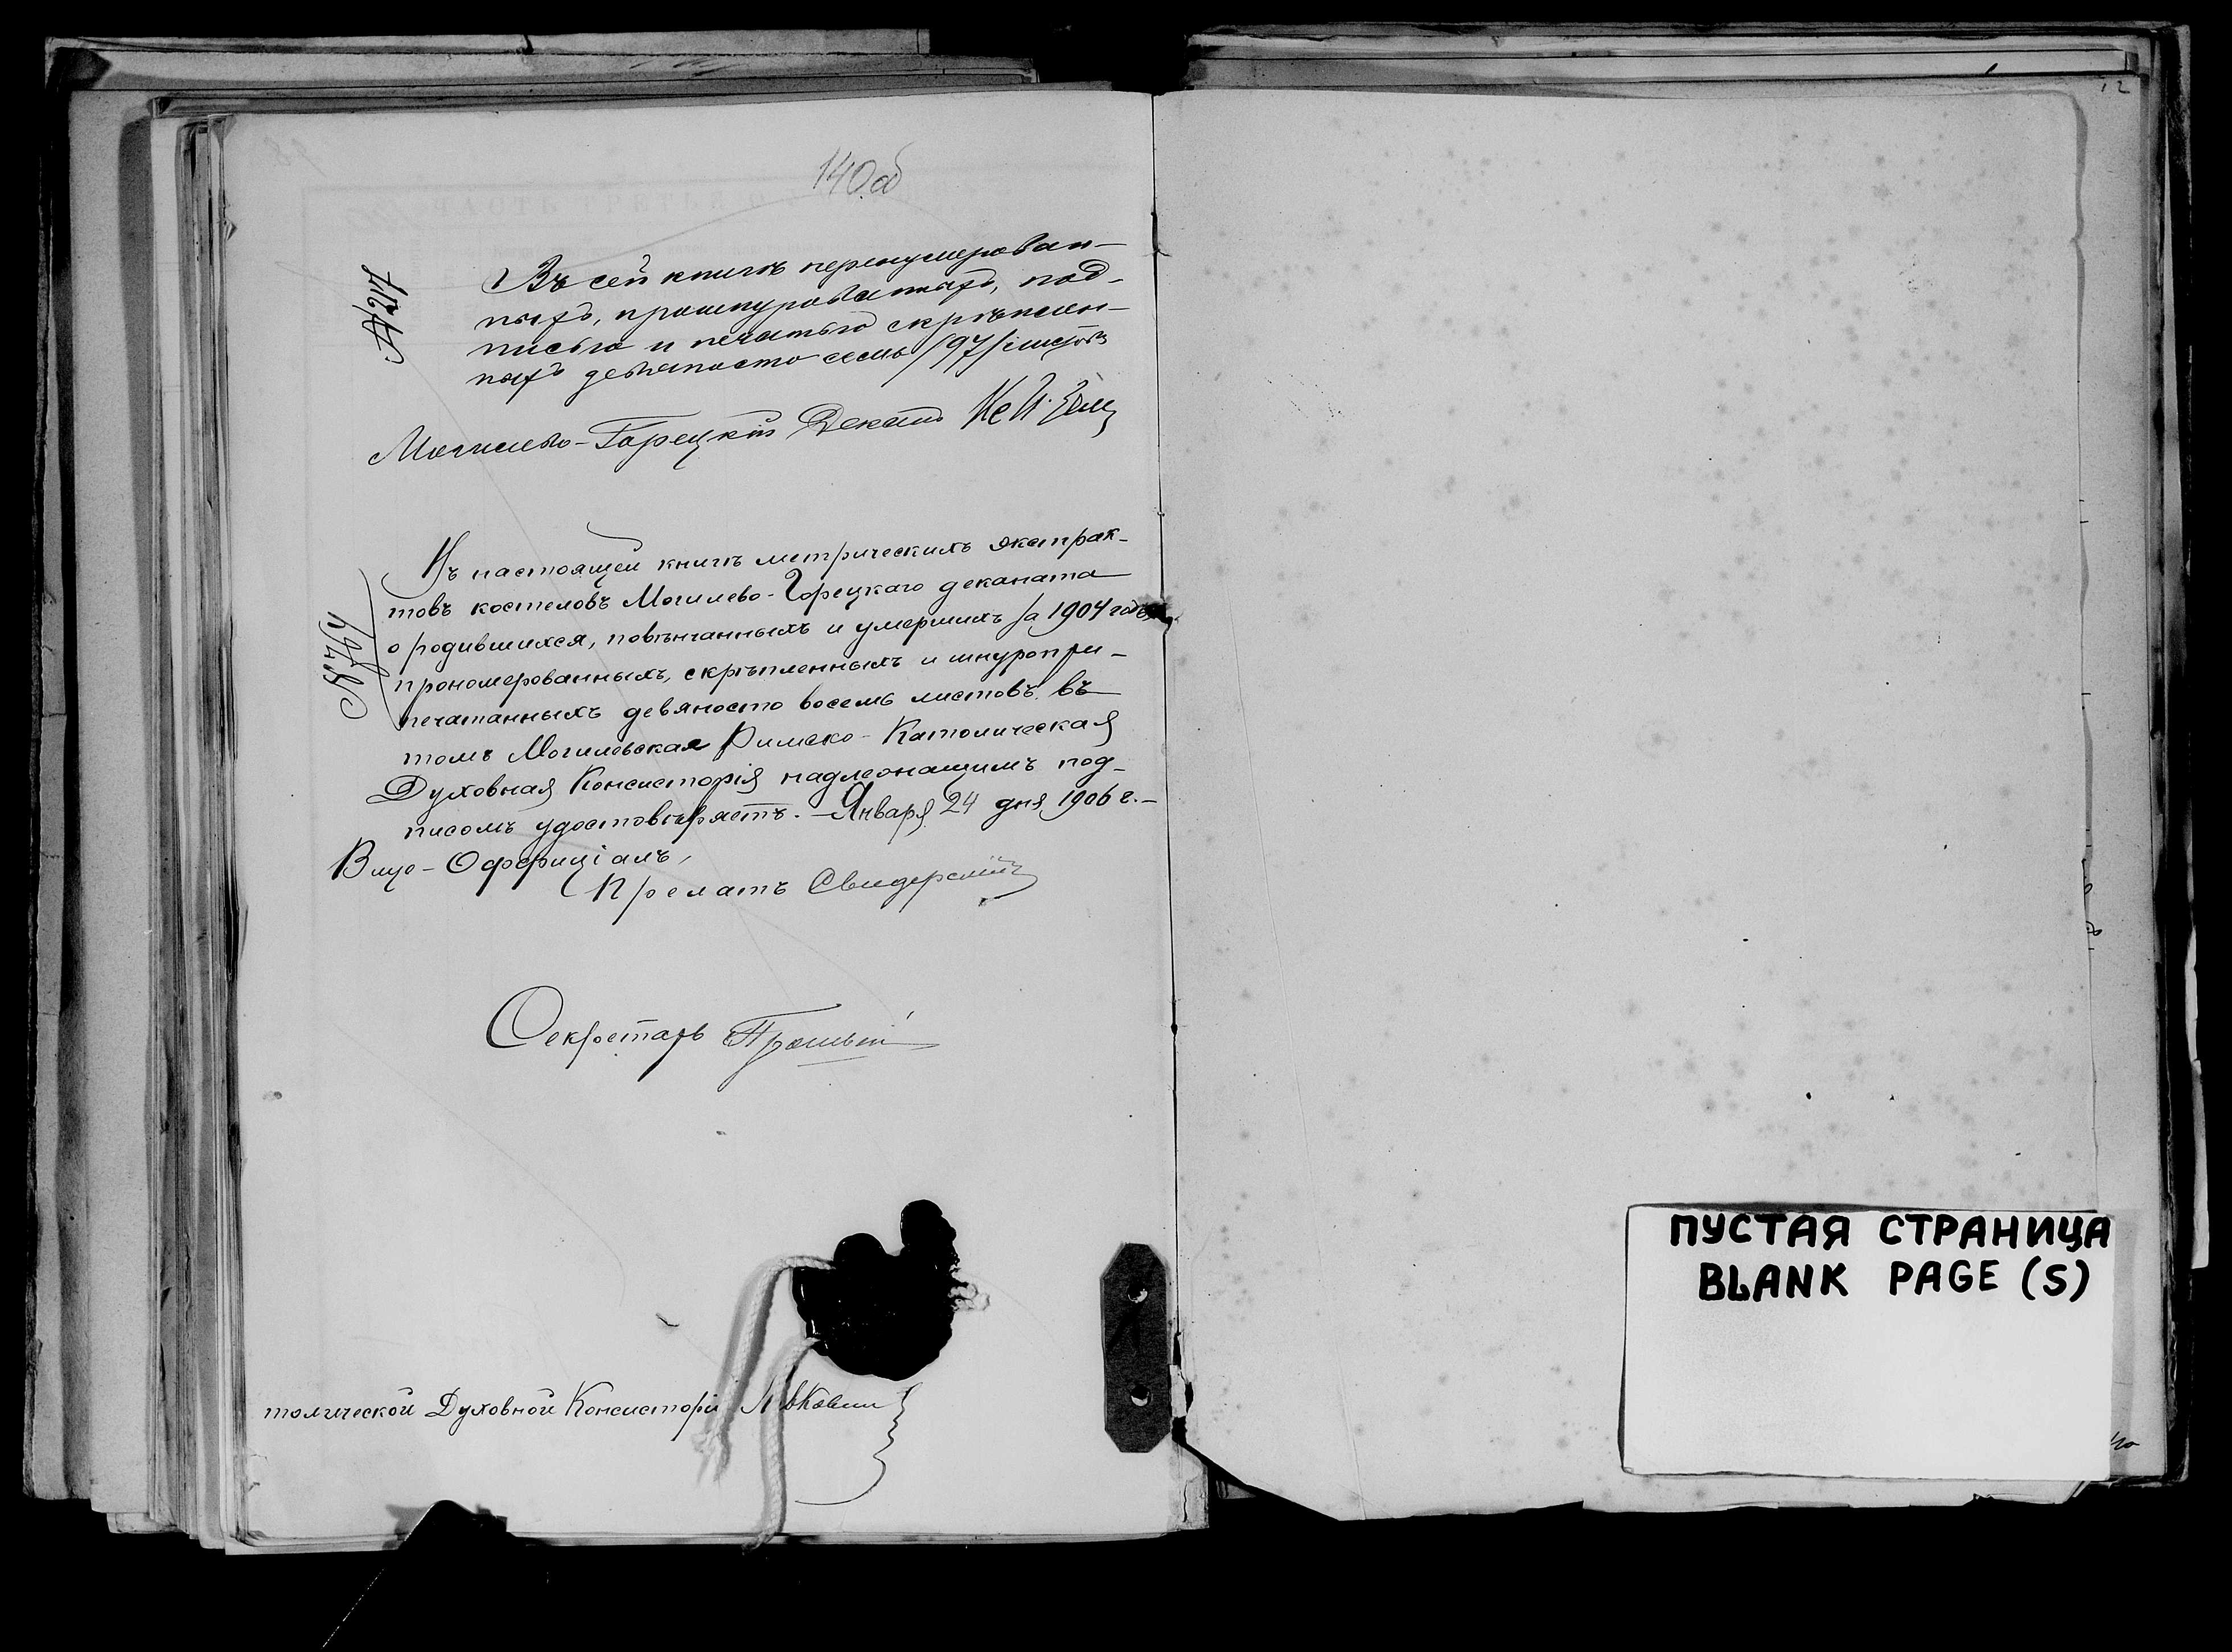 140об
Въ сей книгѣ перенумерован-
ныхъ, прошнурованныхъ, под-
писью и печатью скрѣплен-
ныхъ девяносто семь /97/ листовъ
Могилево-Горецкій Деканъ
№ 217
Въ настоящей книгѣ метрическихъ экстрак-
товъ костеловъ Могилево-Горецкаго деканата
о родившихся, повѣнчанныхъ и умершихъ за 1904 годъ
прономерованныхъ, скрѣпленныхъ и шнуропри-
печатанныхъ девяносто восемь листовъ въ
томъ Могилевская Римско-Католическая
Духовная Консисторія надлежащимъ под-
писомъ удостовѣряетъ.-Января 24 дня 1906 г.-
Вице-Оффиціалъ,
Прелатъ Свидерскій
Секретарь
толической Духовной Консисторіи
ПУСТАЯ СТРАНИЦА
BLANK PAGE (S)